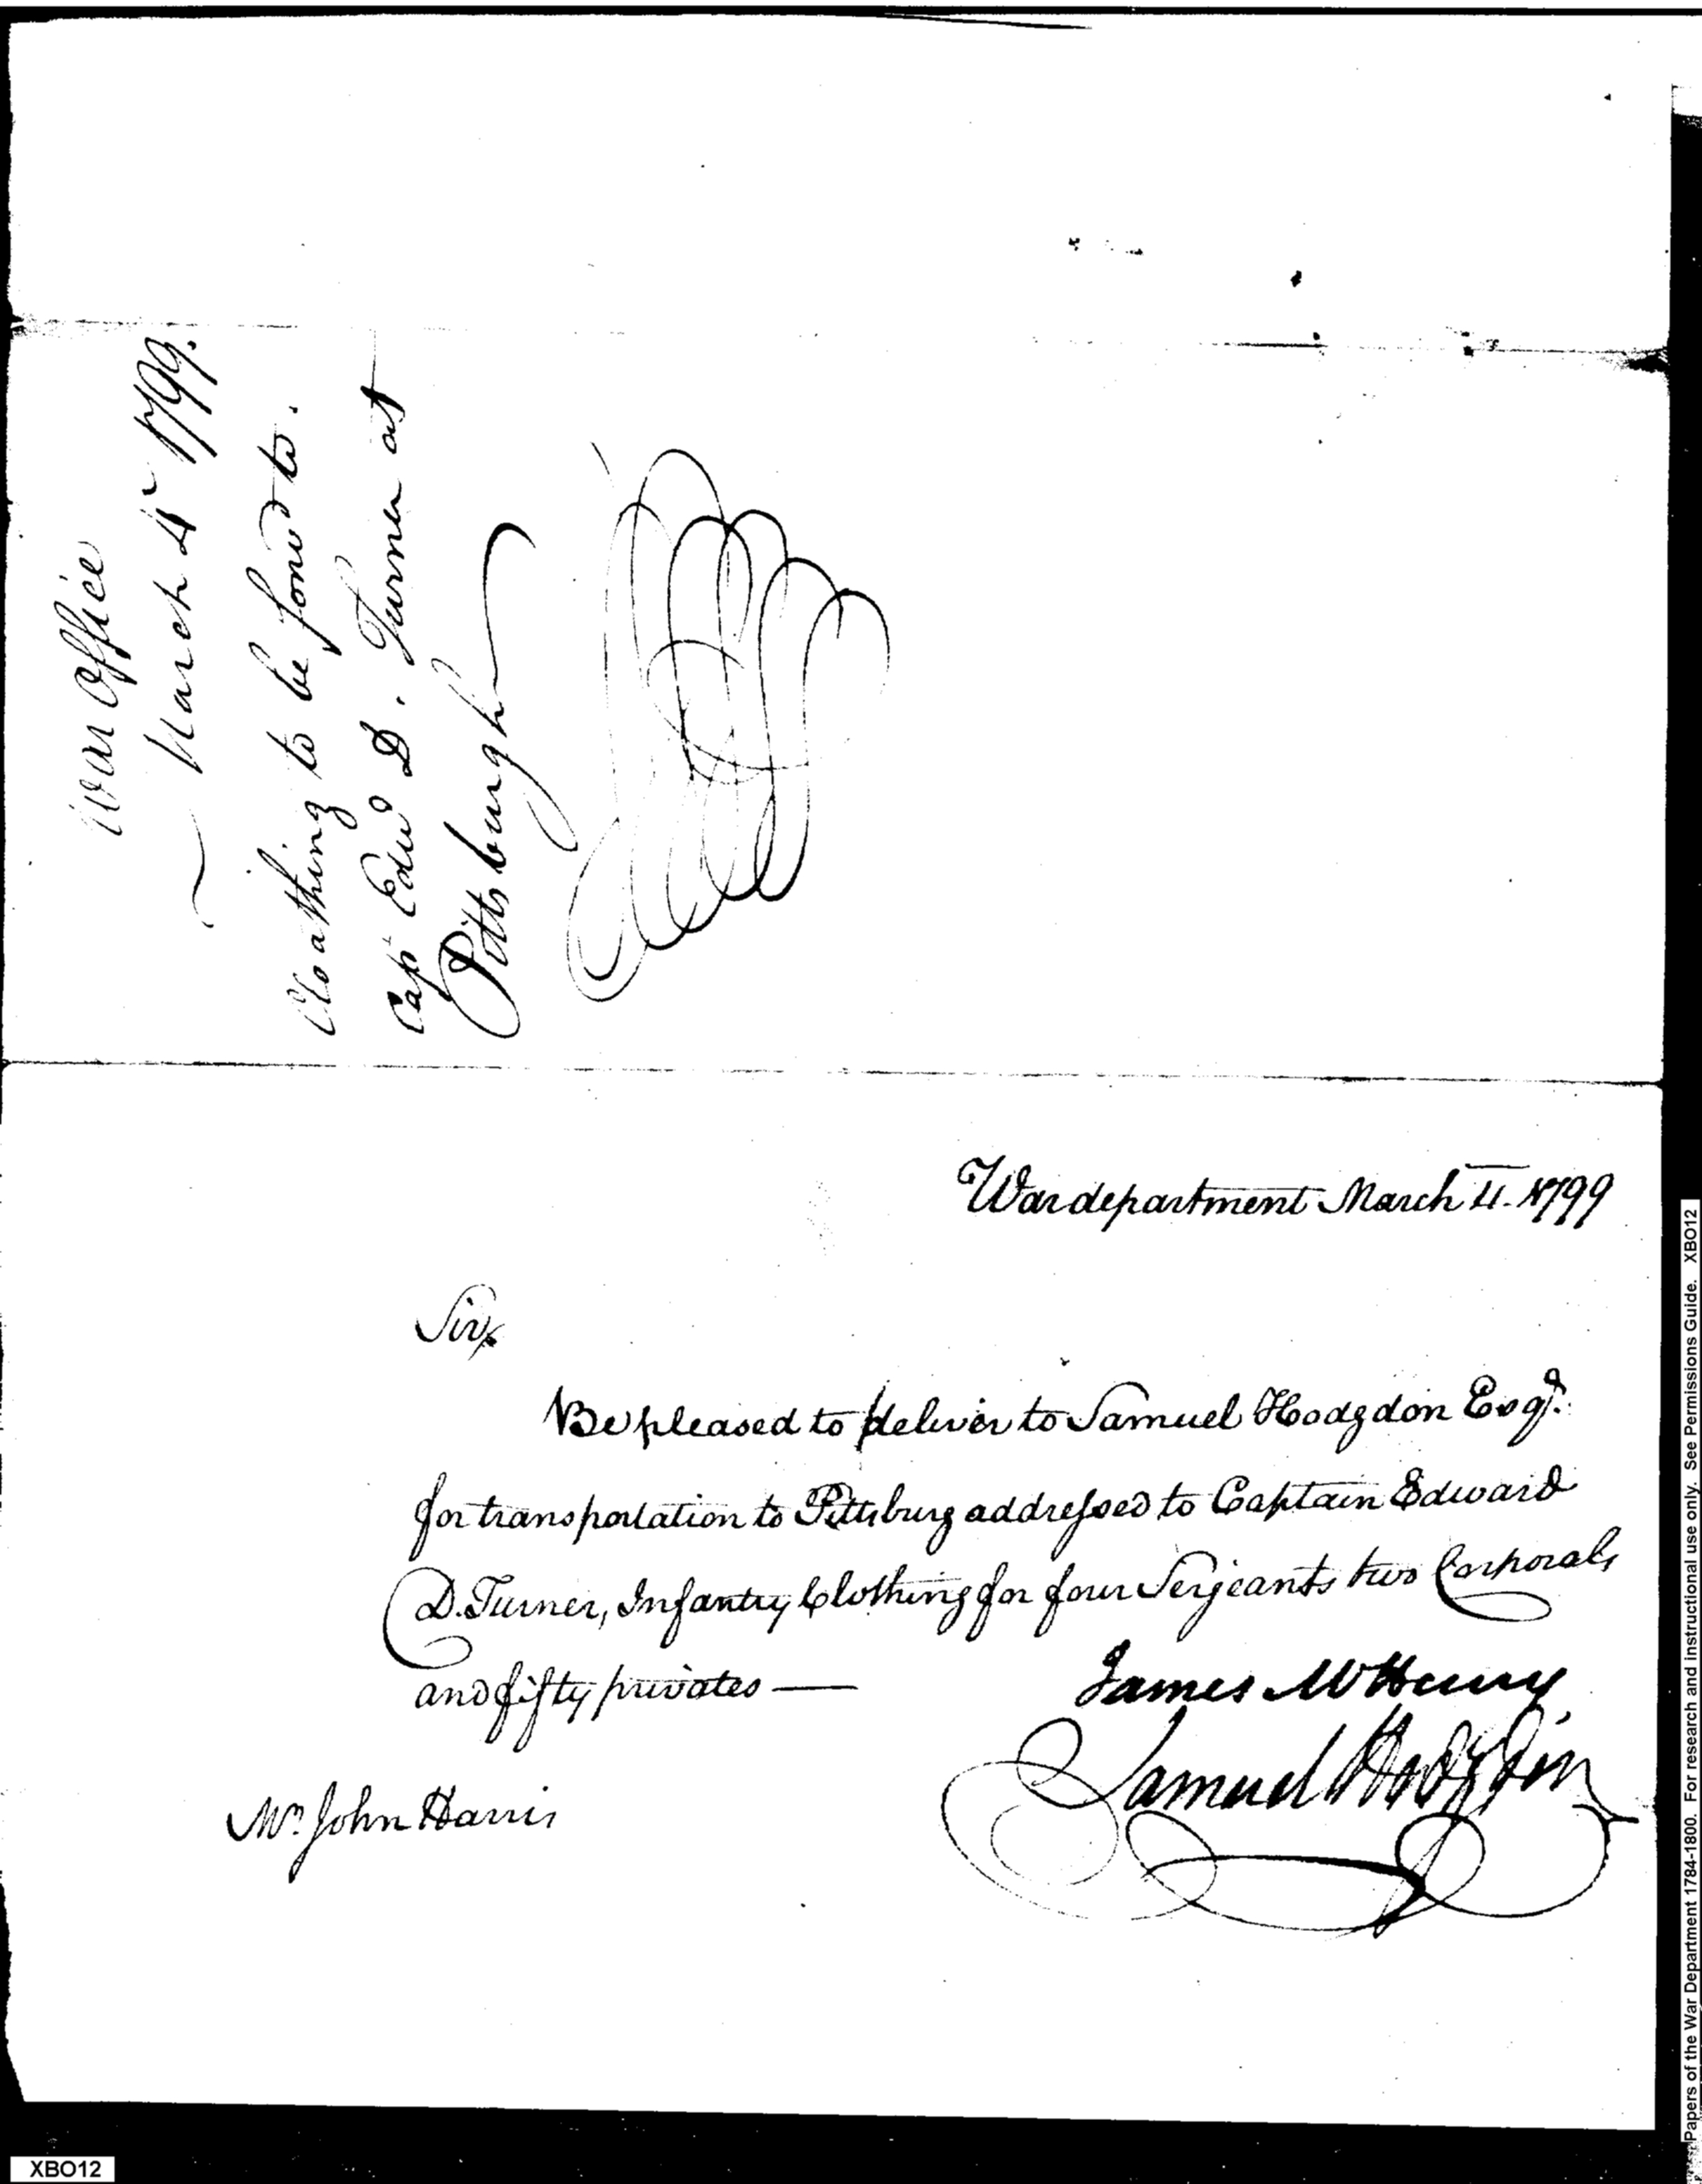 War Office
March 4th 1799.
Cloathing to be forwd to.
Capt Edwd D. Turner at
Pittsburgh
War department March 4. 1799
Sir,
Be pleased to deliver to Samuel Hodgdon Esqr.
for transportation to Pittsburg addressed to Captain Edward
D. Turner, Infantry Clothing for four Sergeants two Corporals
and fifty privates —
James McHenry
Samuel Hodgdon
Mr. John Harris
Papers of the War Department 1784-1800. For research and instructional use only. See Permissions Guide. XBO12
XBO12